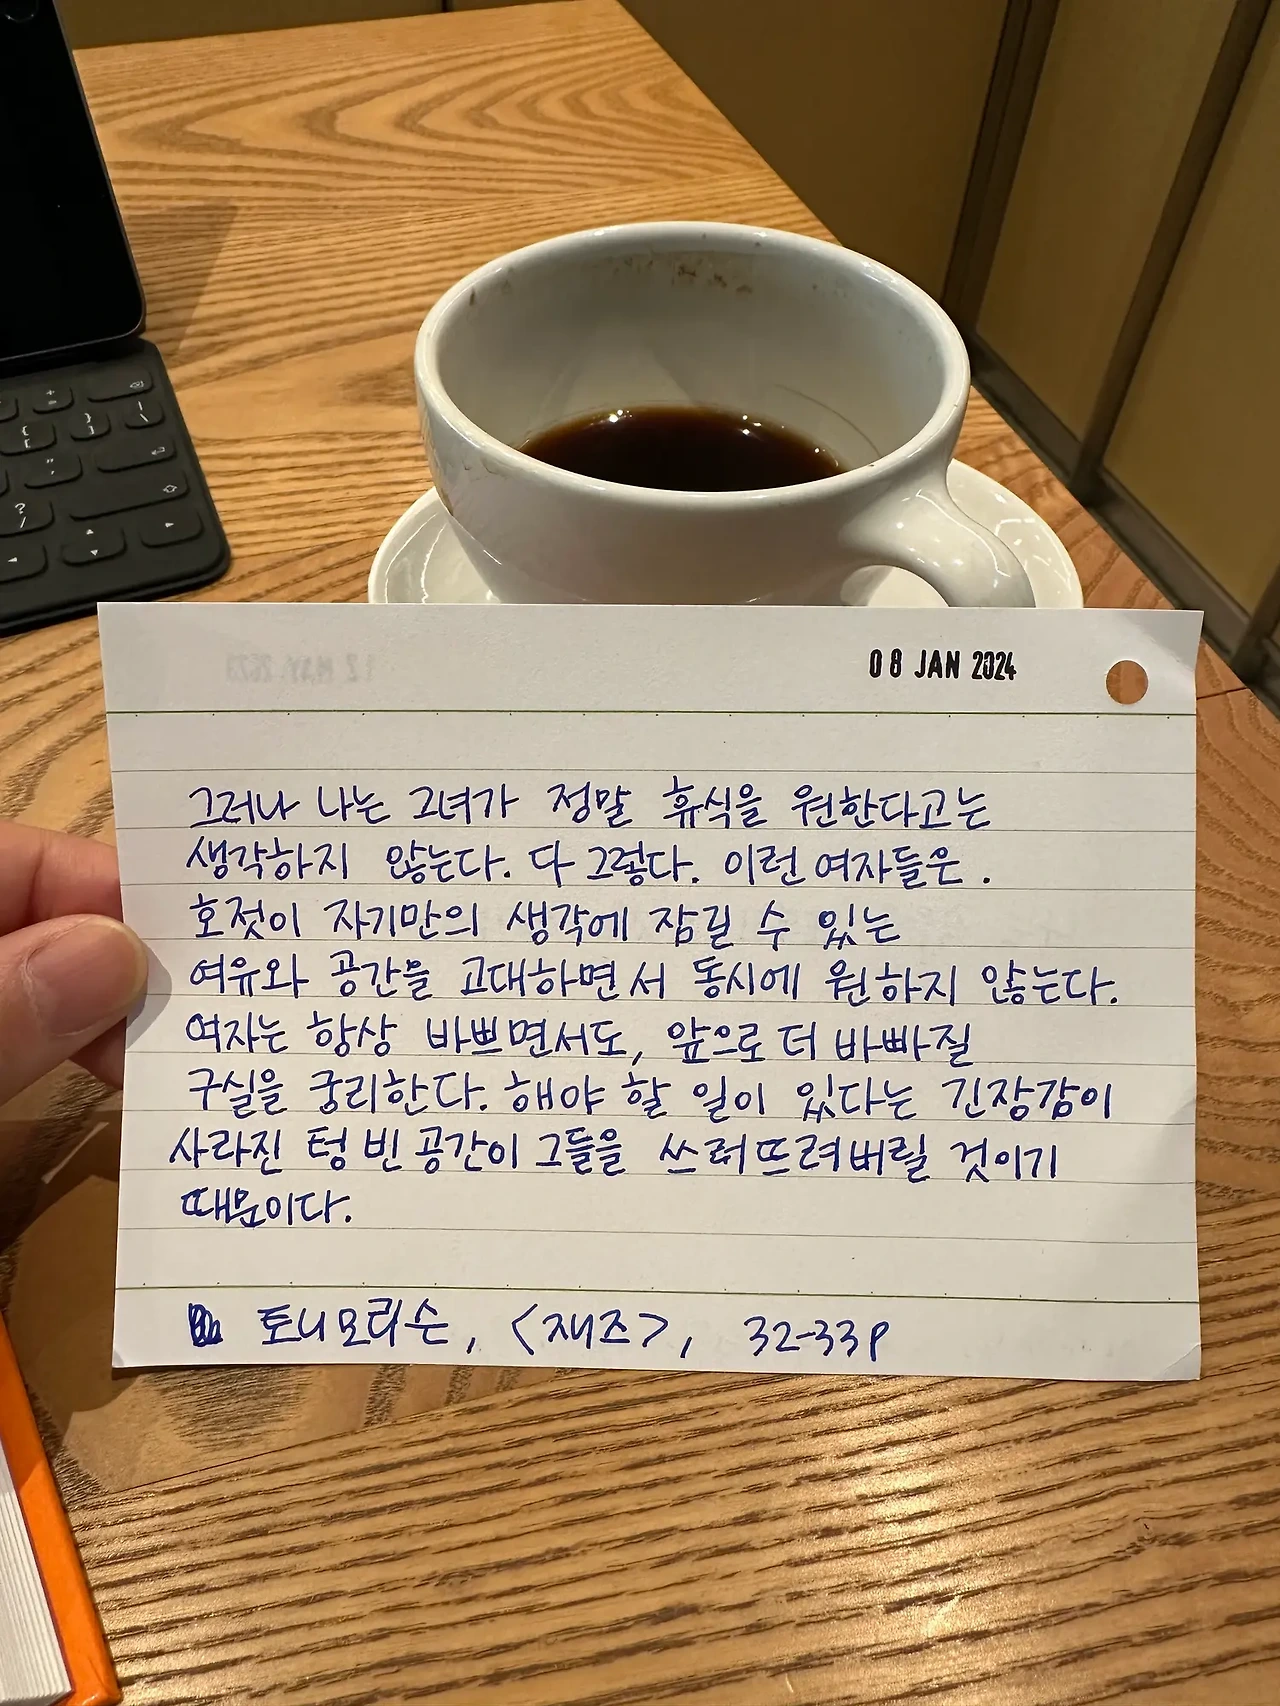 08 JAN 2024
그러나 나는 그녀가 정말 휴식을 원한다고는
생각하지 않는다. 다 그렇다. 이런 여자들은.
호젓이 자기만의 생각에 잠길 수 있는
여유와 공간을 고대하면서 동시에 원하지 않는다.
여자는 항상 바쁘면서도, 앞으로 더 바빠질
구실을 궁리한다. 해야 할 일이 있다는 긴장감이
사라진 텅 빈 공간이 그들을 쓰러뜨려버릴 것이기
때문이다.
토니모리슨, <재즈>, 32-33p